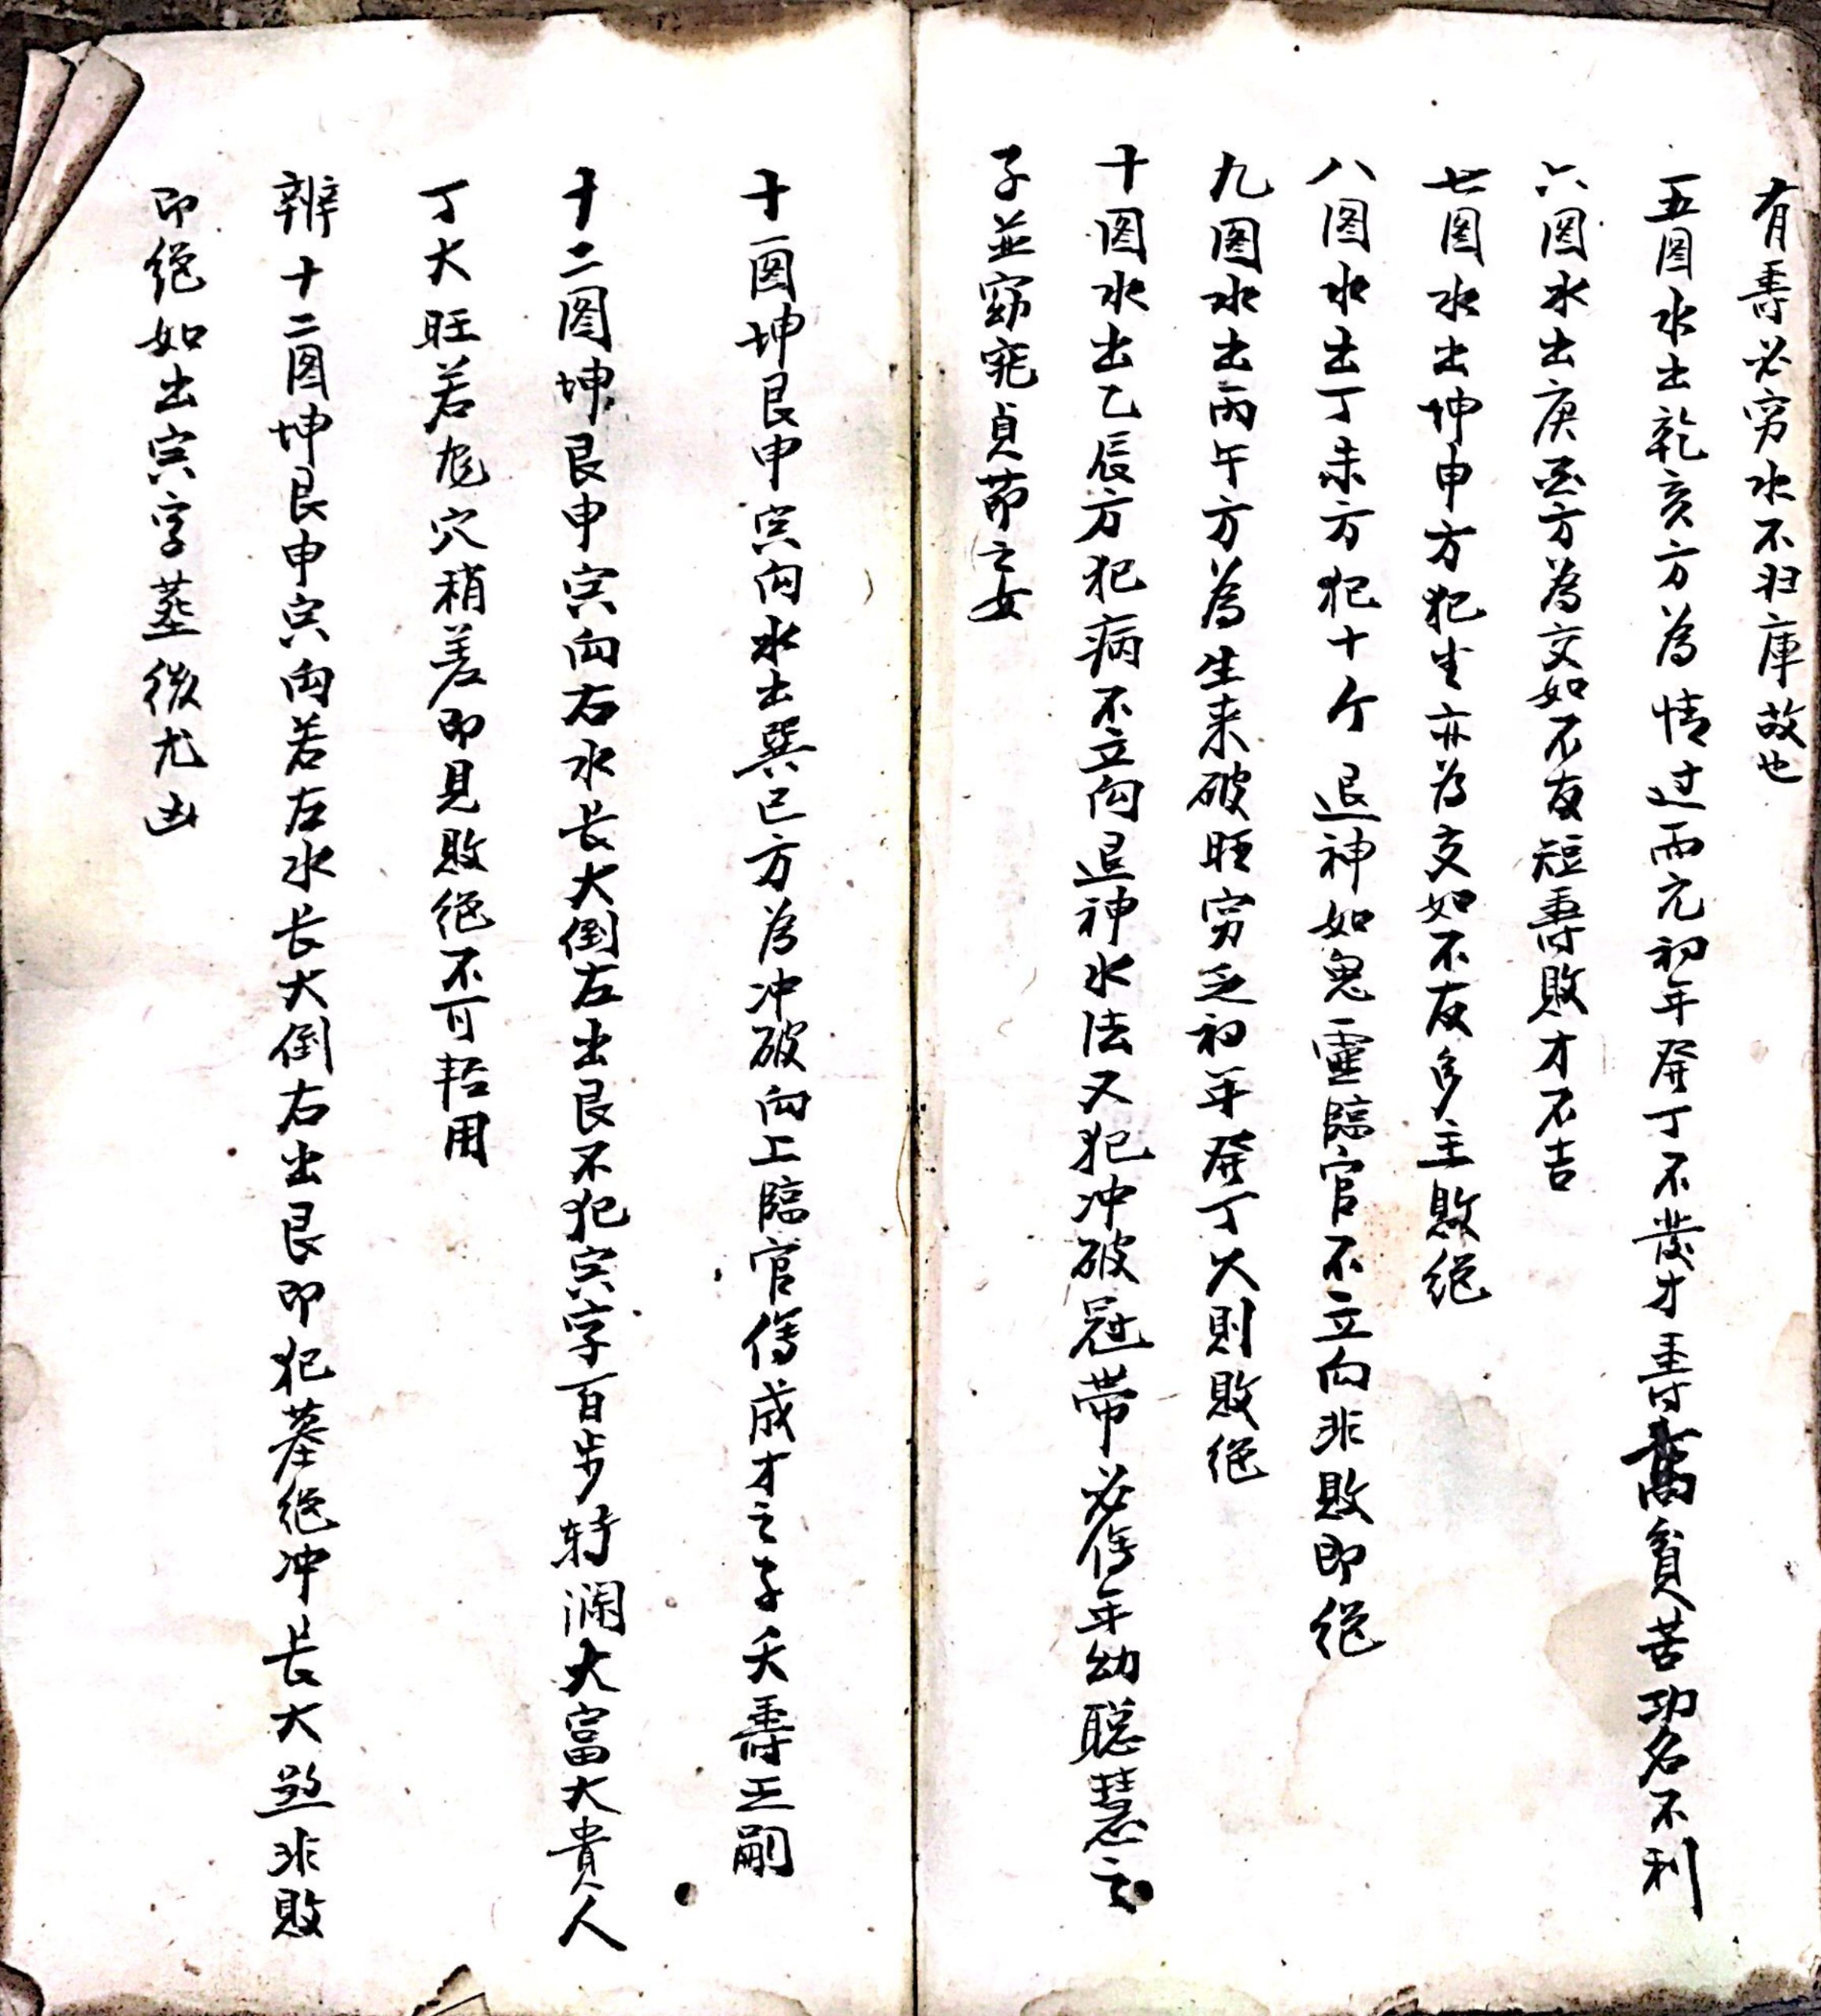 有壽必穷水不归庫故也
五图水出乾亥方為情过而亢初年發丁不發才壽高貧苦功名不利
六图水出庚酉方為交如不及短壽敗才不吉
七图水出坤申方犯生亦为交如不及多主敗绝
八图水出丁未方犯十个退神如鬼靈臨官不立向非敗即绝
九图水出丙午方為生来破旺穷乏初年發丁久則敗绝
十图水出乙辰方犯病不立向退神水法又犯冲破冠帶必傷年幼聪慧之
子並窈窕貞节之女
十一图坤艮申寅向水出巽巳方为冲破向上臨官傷成才之子夭壽乏嗣
十二图坤艮申寅向右水长大倒左出艮不犯寅字百步转澜大富大貴人
丁大旺若龙穴稍差即見敗绝不可轻用
辨十二图坤艮申寅向若左水长大倒右出艮即犯墓绝冲长大煞非敗
即绝如出寅字葬後尤凶